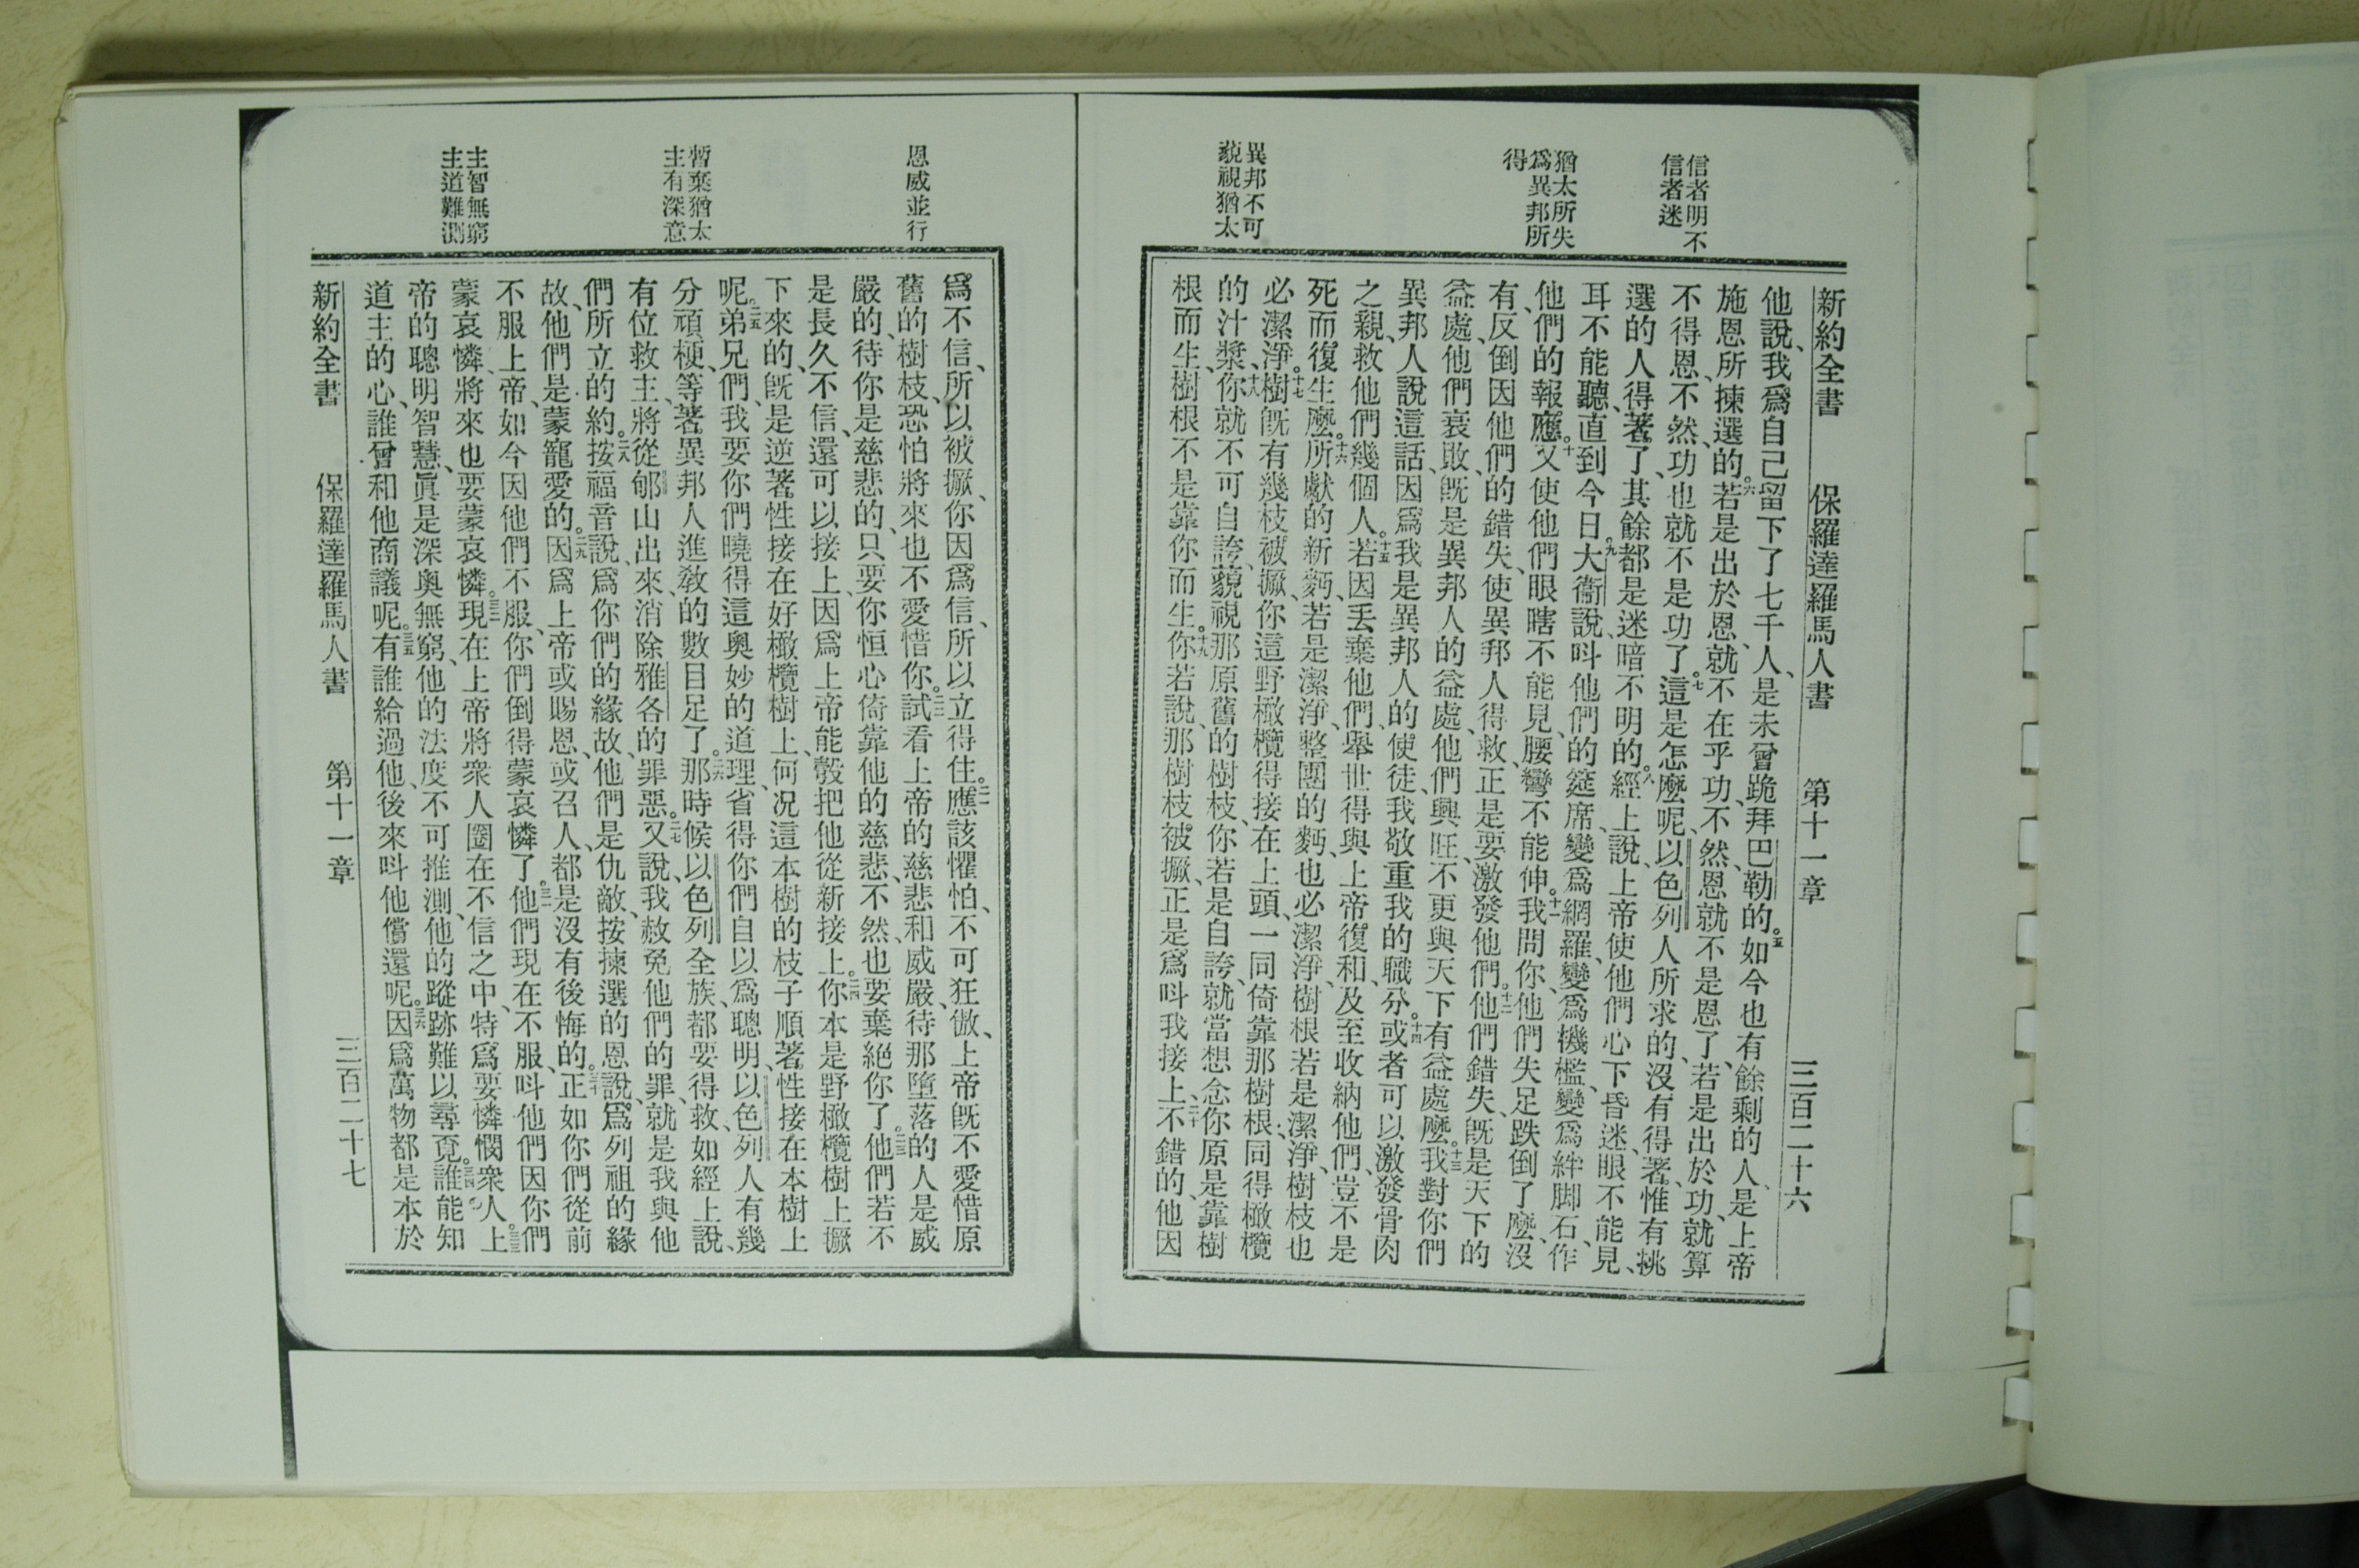 信者明不
信者迷
猶太所失
爲異邦所
得
異邦不可
藐視猶太
新約全書 保羅達羅馬人書 第十一章 三百二十六
他說、我爲自己留下了七千人、是未曾跪拜巴勒的。五如今也有餘剩的人、是上帝
施恩所揀選的。六若是出於恩、就不在乎功、不然、恩就不是恩了、若是出於功、就算
不得恩、不然、功也就不是功了。七這是怎麼呢、以色列人所求的、沒有得著、惟有挑
選的人得著了、其餘都是迷暗不明的。八經上說、上帝使他們心下昏迷、眼不能見、
耳不能聽、直到今日。九大衞說、呌他們的筵席、變爲網羅、變爲機檻、變爲絆脚石、作
他們的報應。十又使他們眼瞎不能見、腰彎不能伸。十一我問你、他們失足跌倒了麼、沒
有、反倒因他們的錯失、使異邦人得救、正是要激發他們。十二他們錯失、旣是天下的
益處、他們衰敗、旣是異邦人的益處、他們興旺、不更與天下有益處麼。十三我對你們
異邦人說這話、因爲我是異邦人的使徒、我敬重我的職分。十四或者可以激發骨肉
之親、救他們幾個人。十五若因丟棄他們、舉世得與上帝復和、及至收納他們、豈不是
死而復生麼。十六所獻的新麪、若是潔淨、整團的麪、也必潔淨、樹根若是潔淨、樹枝也
必潔淨。十七樹旣有幾枝被撅、你這野橄欖得接在上頭、一同倚靠那樹根、同得橄欖
的汁漿、十八你就不可自誇、藐視那原舊的樹枝、你若是自誇、就當想念你原是靠樹
根而生、樹根不是靠你而生。十九你若說、那樹枝被撅、正是爲呌我接上、二十不錯的、他因
恩威並行
暫棄猶太
主有深意
主智無窮
主道難測
爲不信、所以被撅、你因爲信、所以立得住。二一應該懼怕、不可狂傲、上帝旣不愛惜原
舊的樹枝、恐怕將來也不愛惜你。二二試看上帝的慈悲和威嚴、待那墮落的人是威
嚴的、待你是慈悲的、只要你恒心倚靠他的慈悲、不然、也要棄絕你了。二三他們若不
是長久不信、還可以接上、因爲上帝能彀把他從新接上。二四你本是野橄欖樹上撅
下來的、旣是逆著性接在好橄欖樹上、何况這本樹的枝子順著性接在本樹上
呢。二五弟兄們、我要你們曉得這奧妙的道理、省得你們自以爲聰明、以色列人有幾
分頑梗、等著異邦人進敎的數目足了。二六那時候以色列全族、都要得救、如經上說、
有位救主、將從郇山出來、消除雅各的罪惡。二七又說、我赦免他們的罪、就是我與他
們所立的約。二八按福音說、爲你們的緣故、他們是仇敵、按揀選的恩說、爲列祖的緣
故、他們是蒙寵愛的。二九因爲上帝或賜恩、或召人、都是沒有後悔的。三十正如你們從前
不服上帝、如今因他們不服、你們倒得蒙哀憐了。三一他們現在不服、呌他們因你們
蒙哀憐、將來也要蒙哀憐。三二現在上帝將衆人圈在不信之中、特爲要憐憫衆人。三三上
帝的聰明智慧、眞是深奧無窮、他的法度不可推測、他的蹤跡難以尋覓。三四誰能知
道主的心、誰曾和他商議呢。三五有誰給過他、後來呌他償還呢。三六因爲萬物都是本於
新約全書 保羅達羅馬人書 第十一章 三百二十七